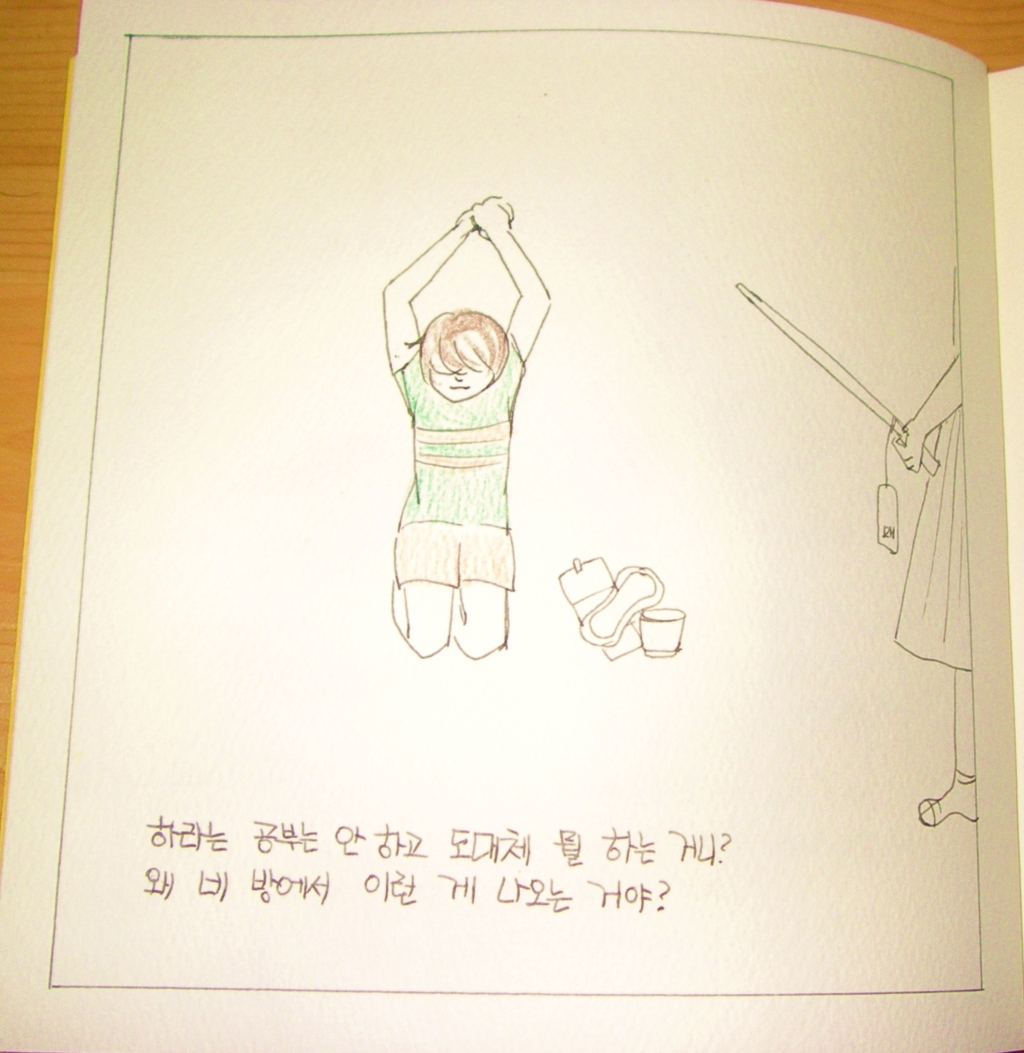 하라는 공부는 안 하고 도대체 뭘 하는 거니?
왜 네 방에서 이런 게 나오는 거야?